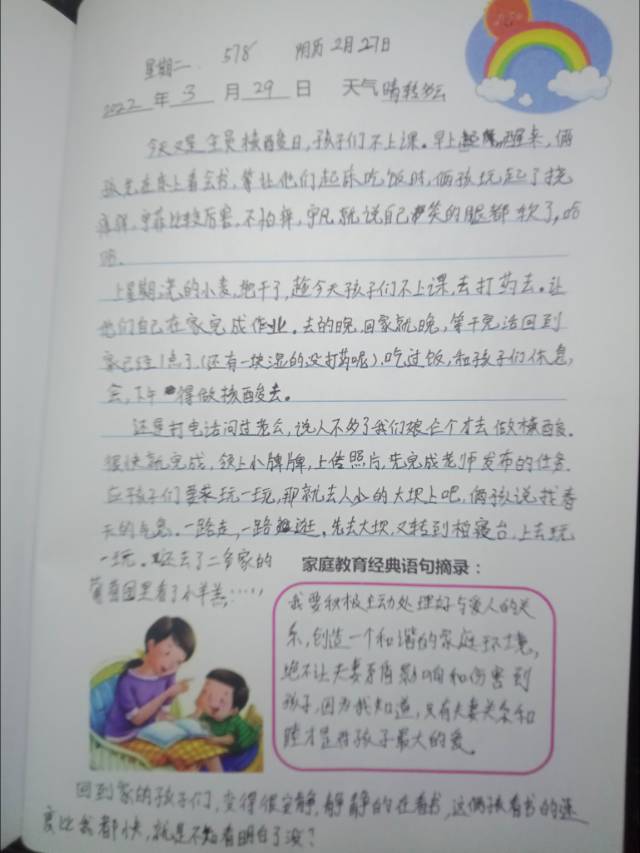 星期二 578 阴历2月27日
2022年3月29日 天气晴转多云
今天又是全员核酸日，孩子们不上课。早上醒来，俩
孩先在床上看会书，等让他们起床吃饭时，俩孩玩起了挠
痒痒，宇菲比较厉害，不怕痒，宇凡就说自己笑的眼都
上星期浇的小麦，地干了，趁今天孩子们不上课，去打药去。让
他们自己在家完成作业。去的晚，回家就晚，等干完活回到
家已经1点了（还有一块湿的没打药呢）。吃过饭，和孩子们休息
会，下午得做核酸去。
还是打电话问过老会，说人不多了我们娘仨个才去做核酸。
很快就完成，领上小牌牌，上传照片，先完成老师发布的任务。
应孩子们要求玩一玩，那就去人少的大坝上吧，俩孩说找春
天的气息。一路走，一路逛，先去大坝，又转到柏寝台，上去玩
一玩。还去了二多家的
葡萄园里看了小羊羔……
家庭教育经典语句摘录：
我要积极主动处理好与爱人的关
系，创造一个和谐的家庭环境，
绝不让夫妻矛盾影响和伤害到
孩子，因为我知道，只有夫妻关系和
睦才是给孩子最大的爱。
回到家的孩子们，变得很安静，静静的在看书，这俩孩看书的速
度比我都快，就是不知看明白了没？